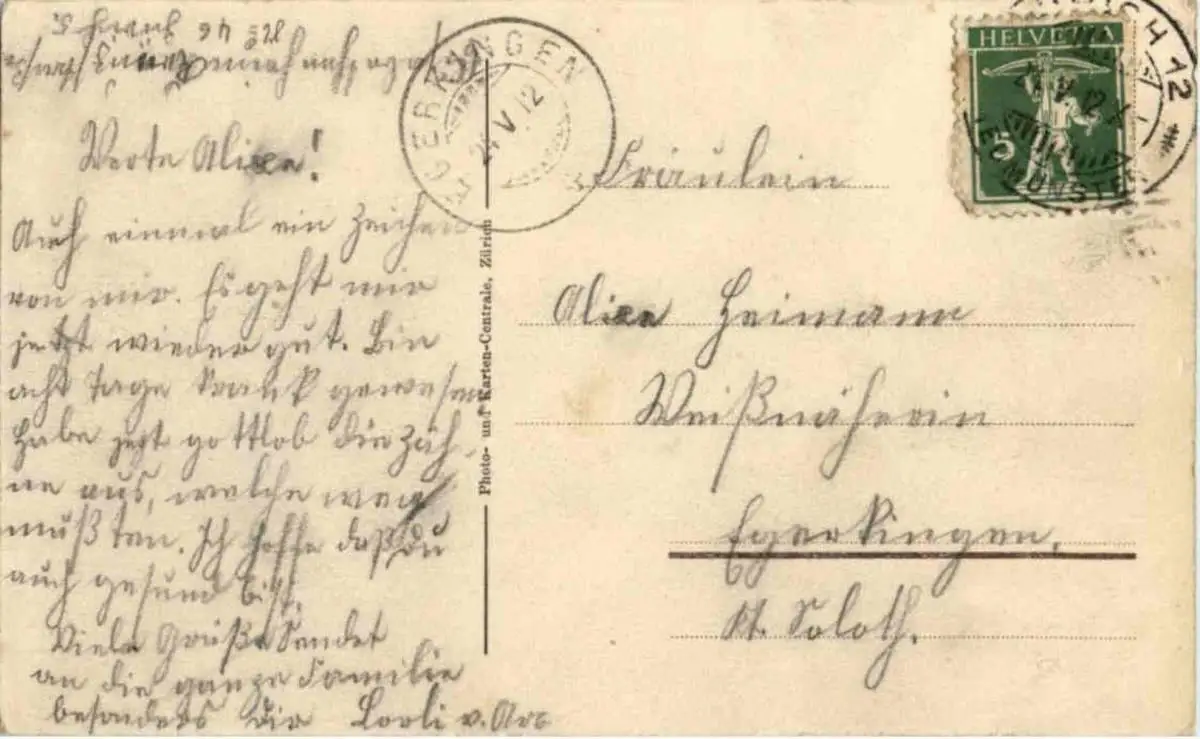 No 46 Zürich 5.
Werte Alice!
Auch einmal ein Zeichen
von mir. Es geht mir
jetzt wieder gut. Bin
acht Tage krank gewesen
Habe jetzt gottlob die Zäh-
ne aus, welche weg
mußten. Ich hoffe daß du
auch gesund bist.
Viele Grüße Sendet
an die ganze Familie
besonders dir Lorli v. Arx
Photo- und Karten-Centrale, Zürich
EGERKINGEN
24.V.12
HELVETIA
5
24.V.12
Fräulein
Alice Heimann
Weißnäherin
Egerkingen.
Kt. Soloth.